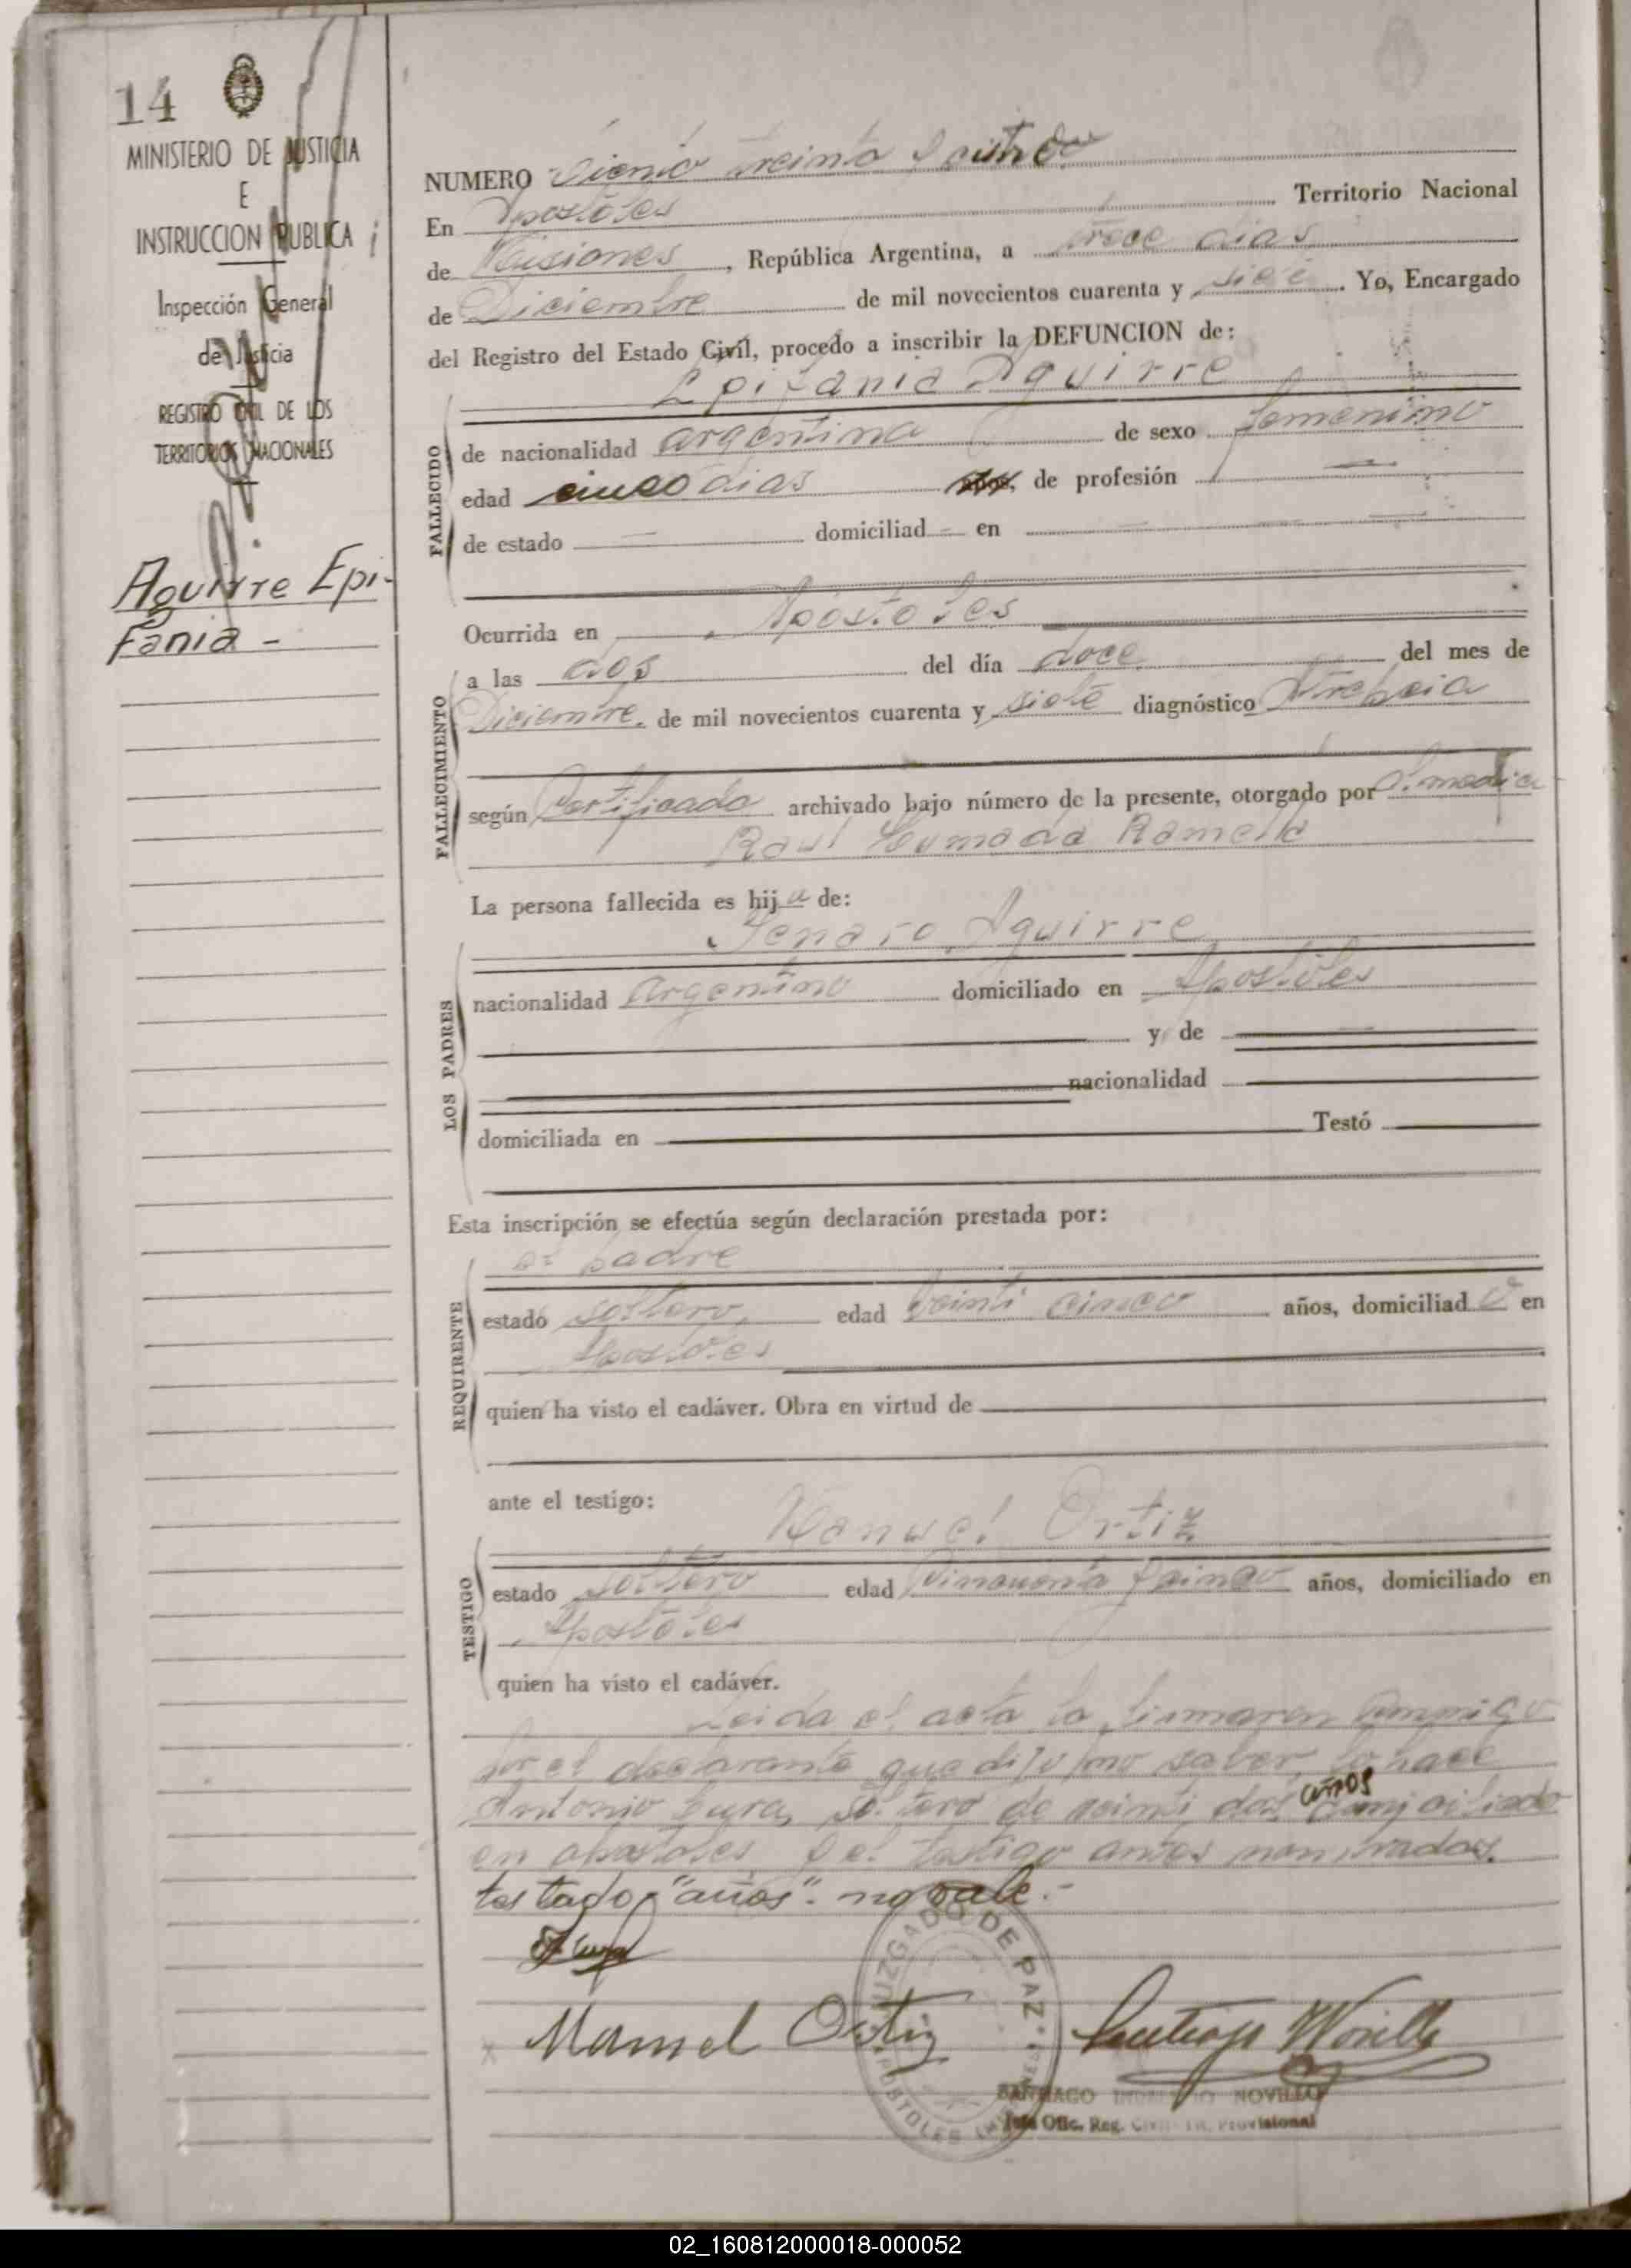 14
MINISTERIO DE JUSTICIA
E
INSTRUCCION PUBLICA
Inspección General
de Justicia
REGISTRO CIVIL DE LOS
TERRITORIOS NACIONALES
Aguirre Epi-
fania -
NUMERO Ciento treinta y cuatro
En Apostoles Territorio Nacional
de Misiones, República Argentina, a trece dias
de Diciembre de mil novecientos cuarenta y siete. Yo, Encargado
del Registro del Estado Civil, procedo a inscribir la DEFUNCION de:
Epifania Aguirre
FALLECIDO
de nacionalidad argentina de sexo femenino
edad cinco dias años, de profesión —
de estado — domiciliad — en —
Ocurrida en Apostoles
FALLECIMIENTO
a las dos del día doce del mes de
Diciembre de mil novecientos cuarenta y siete diagnóstico Atrepcia
según Certificado archivado bajo número de la presente, otorgado por
Raul
La persona fallecida es hija de:
Jenaro Aguirre
LOS PADRES
nacionalidad Argentino domiciliado en Apostoles
y de
nacionalidad
domiciliada en Testó
Esta inscripción se efectúa según declaración prestada por:
el padre
REQUIRENTE
estado soltero, edad veinti cinco años, domiciliado en
Apostoles
quien ha visto el cadáver. Obra en virtud de
ante el testigo:
Manuel Ortiz
TESTIGO
estado soltero edad cincuenta y cinco años, domiciliado en
Apostoles
quien ha visto el cadáver.
Leida el acta la firmaron conmigo
por el declarante que dijo no saber, lo hace
Antonio soltero de veinti dos años domiciliado
en apostoles y el testigo antes nombrados.
testado "años". no vale.-
Manuel Ortiz
Santiago Novillo
JUZGADO DE PAZ
APOSTOLES
SANTIAGO NOVILLO
Jefe Ofic. Reg. Civil Provisional
02_160812000018-000052